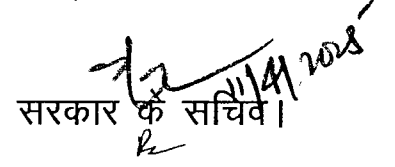 11/4/2025
सरकार के सचिव।